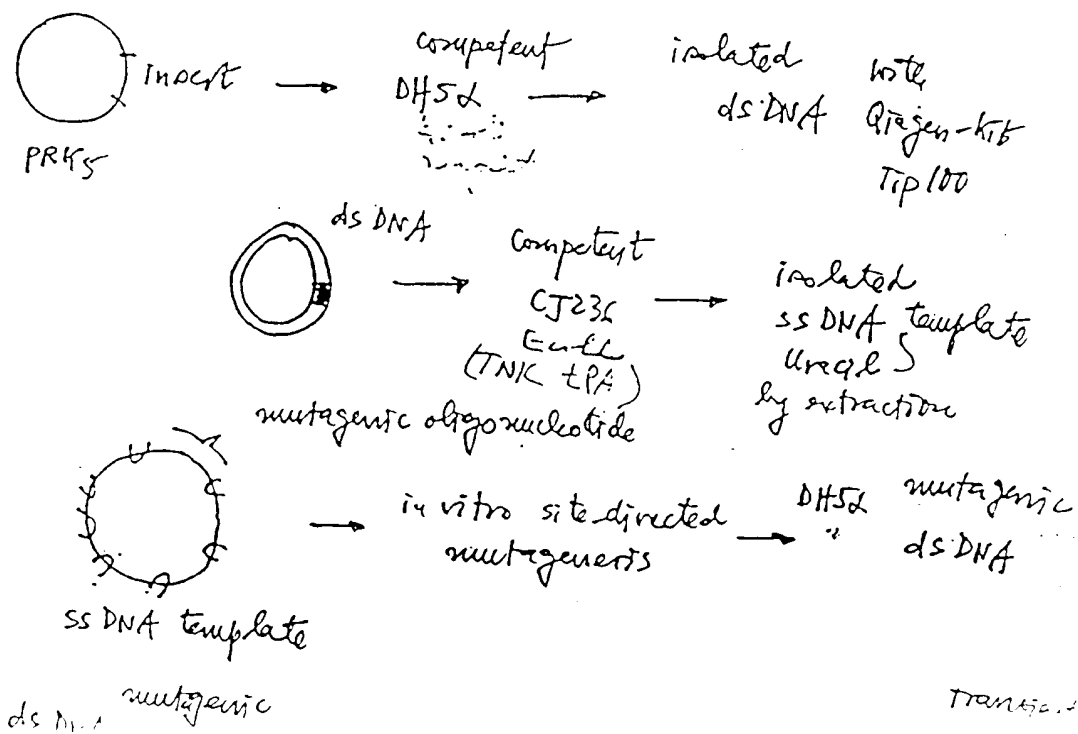 Insert
PRK5
competent
DH5α
isolated
dsDNA
with
Qiagen-Kit
Tip 100
ds DNA
competent
CJ236
(TNK tPA)
isolated
ssDNA template
Uracil
by extraction
mutagenic oligonucleotide
in vitro site-directed
mutagenesis
DH5α
mutagenic
dsDNA
ss DNA template
mutagenic